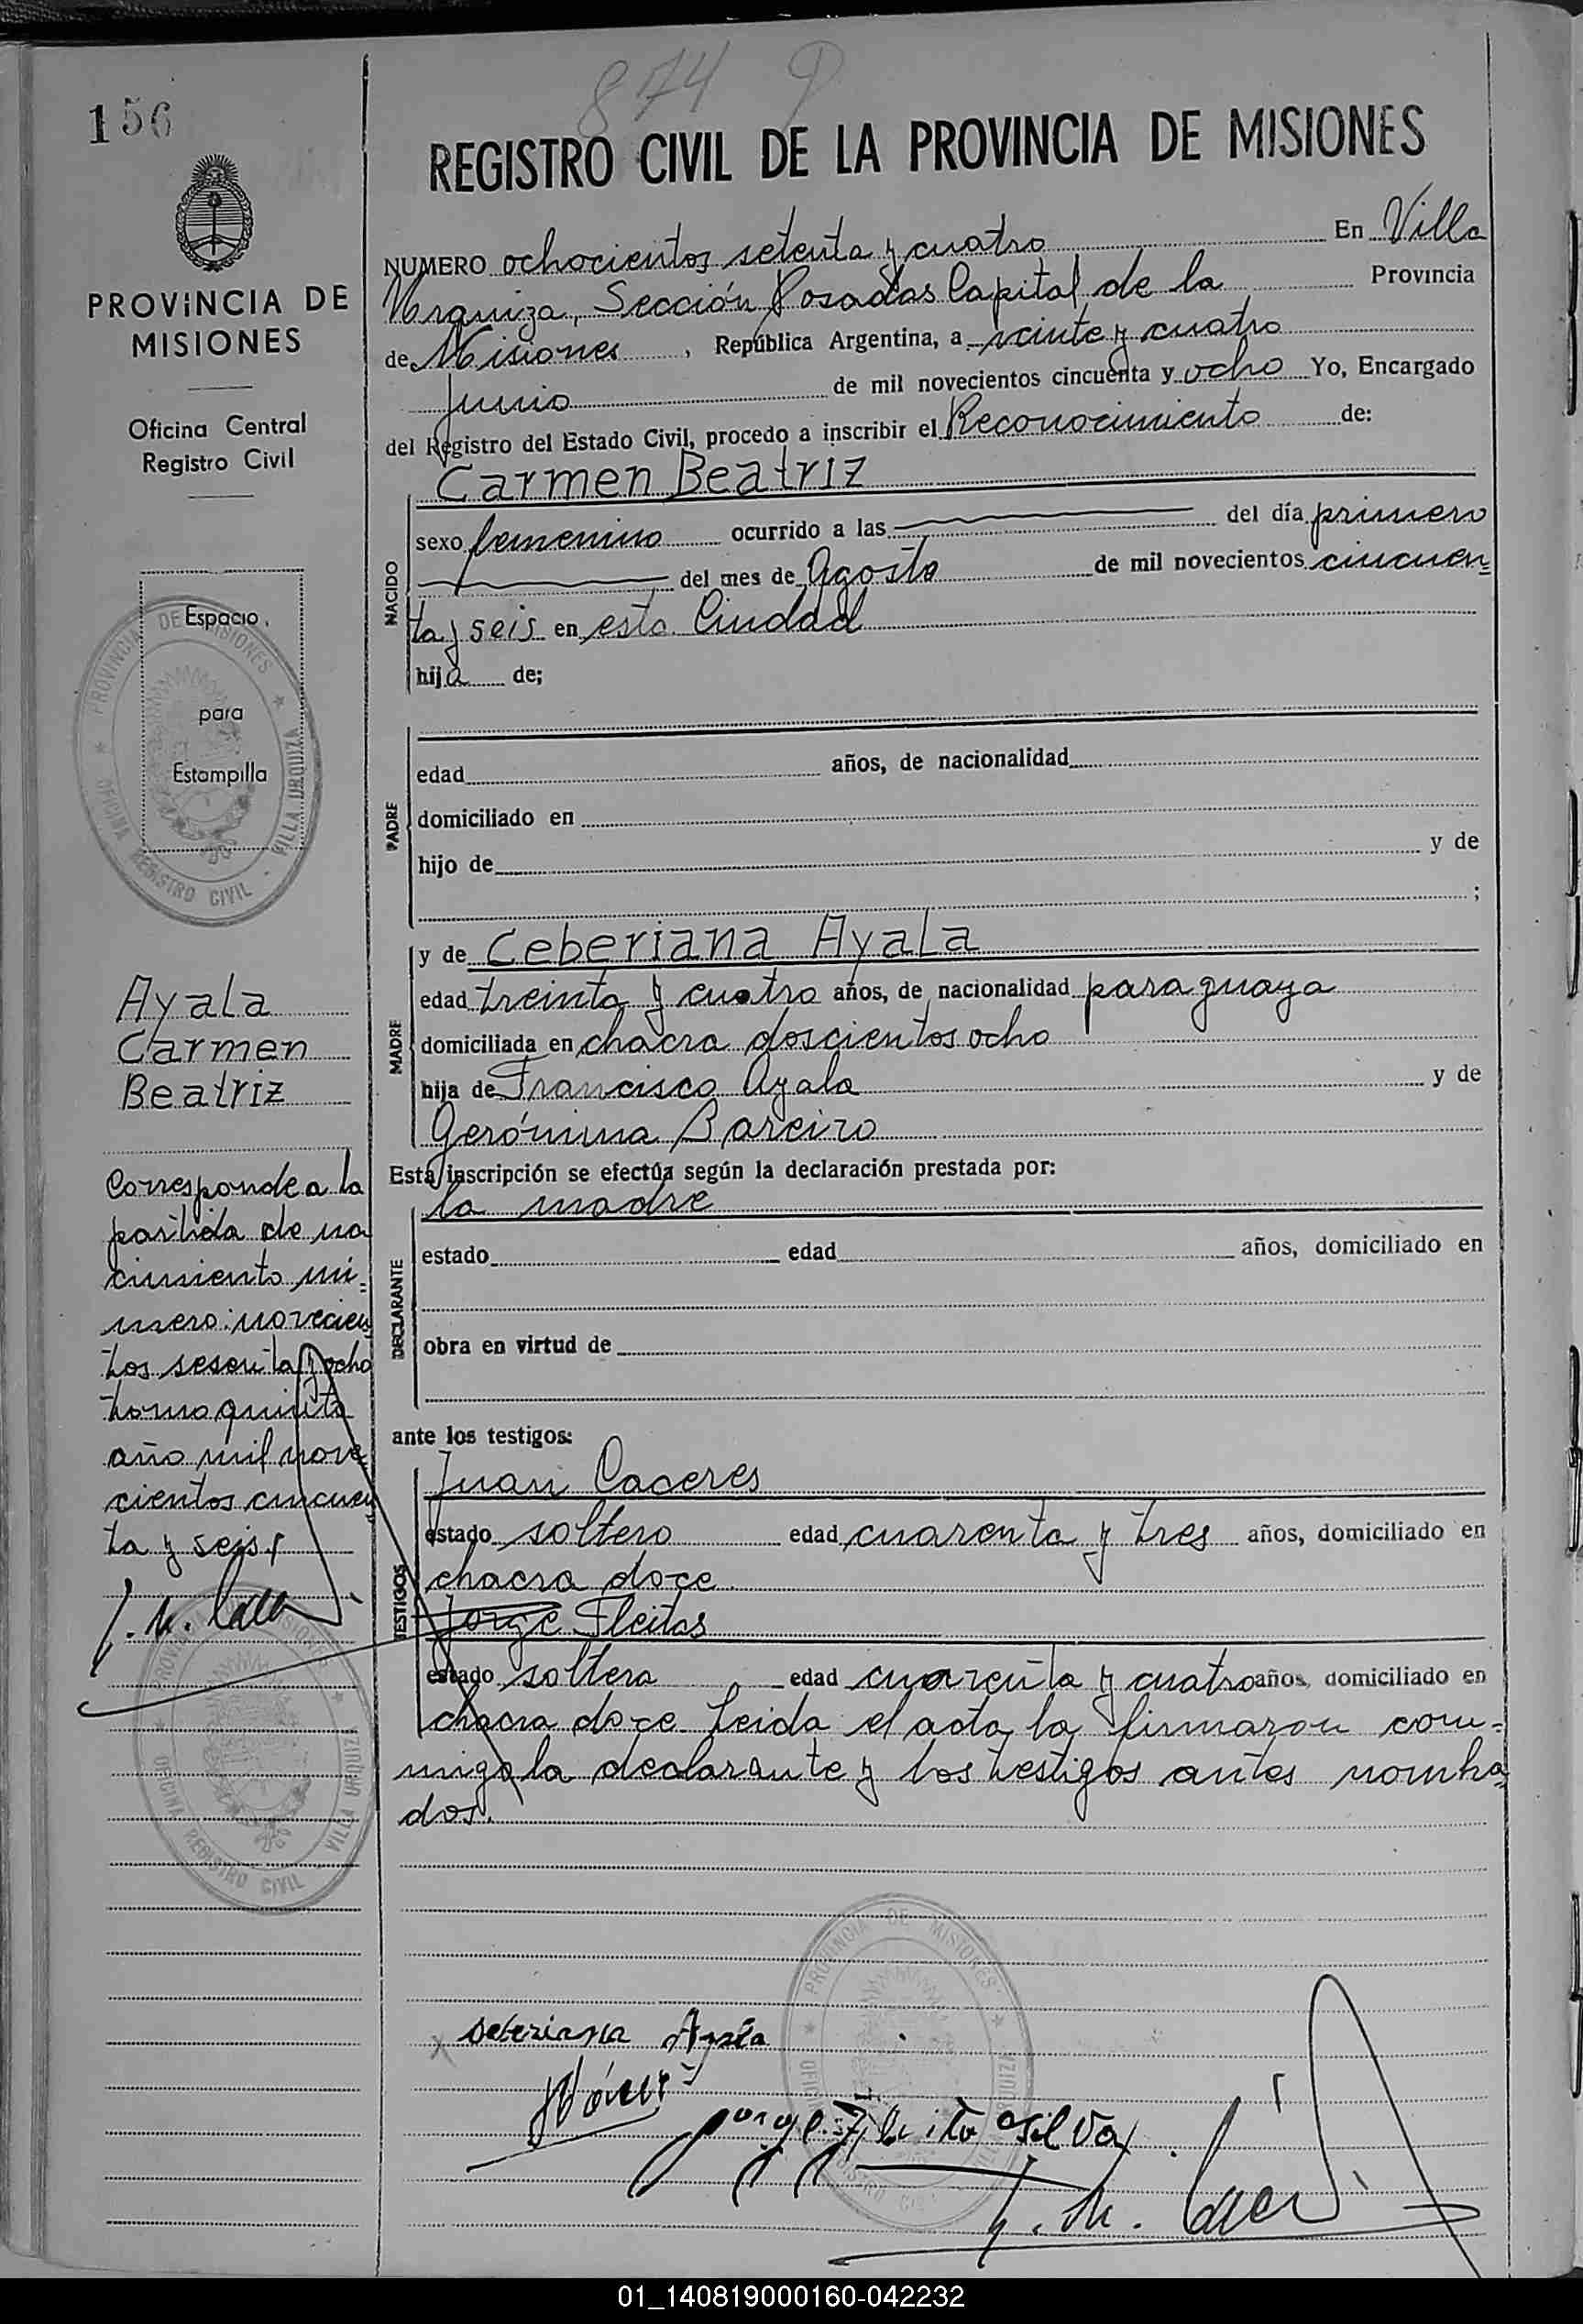 874
156
REGISTRO CIVIL DE LA PROVINCIA DE MISIONES
NUMERO ochocientos setenta y cuatro En Villa
Urquiza, Sección Posadas Capital de la Provincia
de Misiones, República Argentina, a veinte y cuatro
Junio de mil novecientos cincuenta y ocho Yo, Encargado
del Registro del Estado Civil, procedo a inscribir el Reconocimiento de:
Carmen Beatriz
NACIDO
sexo femenino ocurrido a las del día primero
del mes de Agosto de mil novecientos cincuen=
ta y seis en esta Ciudad
hija de;
PADRE
edad años, de nacionalidad
domiciliado en
hijo de y de
;
MADRE
y de Ceberiana Ayala
edad treinta y cuatro años, de nacionalidad paraguaya
domiciliada en chacra doscientos ocho
hija de Francisco Ayala y de
Gerónima Bareiro
Esta inscripción se efectúa según la declaración prestada por:
DECLARANTE
la madre
estado edad años, domiciliado en
obra en virtud de
ante los testigos:
TESTIGOS
Juan Caceres
estado soltero edad cuarenta y tres años, domiciliado en
chacra doce
Jorge Fleitas
estado soltero edad cuarenta y cuatro años, domiciliado en
chacra doce Leida el acta la firmaron con=
migo la declarante y los testigos antes nombra=
dos.
PROVINCIA DE
MISIONES
Oficina Central
Registro Civil
Espacio
para
Estampilla
PROVINCIA DE MISIONES
OFICINA REGISTRO CIVIL - VILLA URQUIZA
Ayala
Carmen
Beatriz
Corresponde a la
partida de na
cimiento nú=
mero: novecien
tos sesenta y ocho
tomo quinto
año mil nove
cientos cincuen
ta y seis
PROVINCIA DE MISIONES
OFICINA REGISTRO CIVIL VILLA URQUIZA
PROVINCIA DE MISIONES
x Seberiana Ayala
Jorge Fleita Silva
01_140819000160-042232